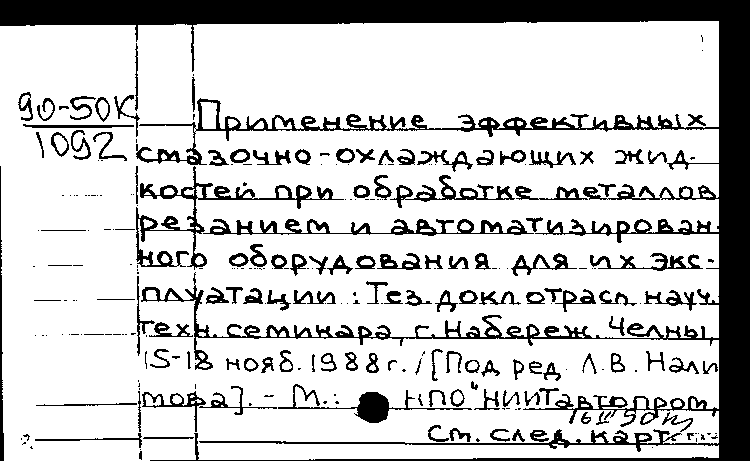 90-50К
1092
Применение эффективных
смазочно-охлаждающих жид-
костей при обработке металлов
резанием и автоматизирован-
ного оборудования для их экс-
плуатации: Тез. докл. отрасл. науч.
техн. семинара, г. Набереж. Челны,
15-18 нояб. 1988г. / [Под ред. Л.В. Нали
мова]. - М.: НПО "НИИТавтопром,
16 III 90
См. след. карт.